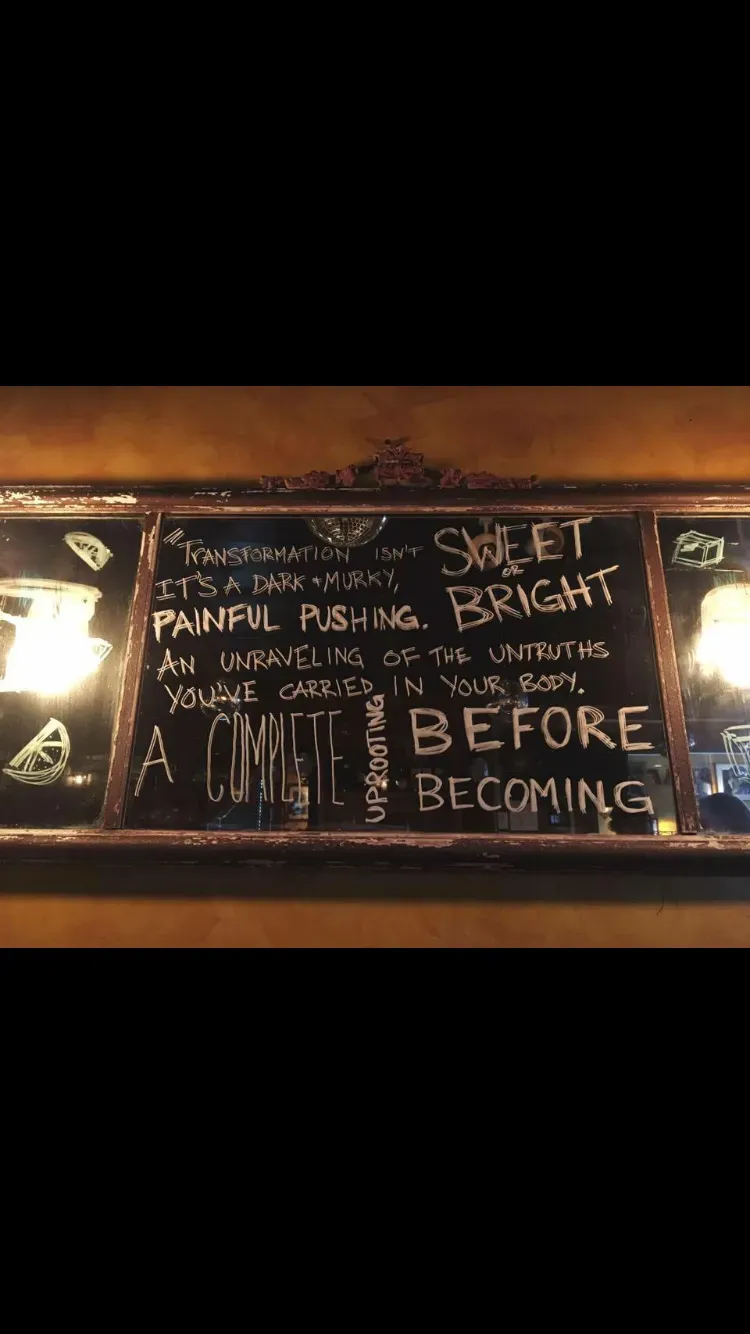 "TRANSFORMATION ISN'T SWEET
OR
BRIGHT
IT'S A DARK + MURKY,
PAINFUL PUSHING.
AN UNRAVELING OF THE UNTRUTHS
YOU'VE CARRIED IN YOUR BODY.
A COMPLETE UPROOTING BEFORE
BECOMING